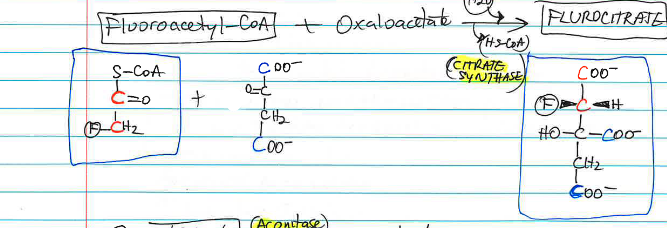 H2O
Fluoroacetyl-CoA + Oxaloacetate FLUROCITRATE
(HS-CoA)
(CITRATE SYNTHASE)
S-CoA COO⁻ COO⁻
C=O + O=C F C H
F-CH2 CH2 HO-C-COO⁻
COO⁻ CH2
COO⁻
(Aconitase)